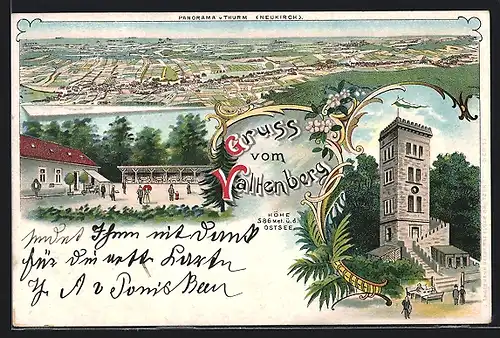 PANORAMA v THURM (NEUKIRCH).
Gruss
vom
Valtenberg
HÖHE
586 Met. ü. d.
OSTSEE.
sendet Ihnen mit Dank
für die nette Karte
A v